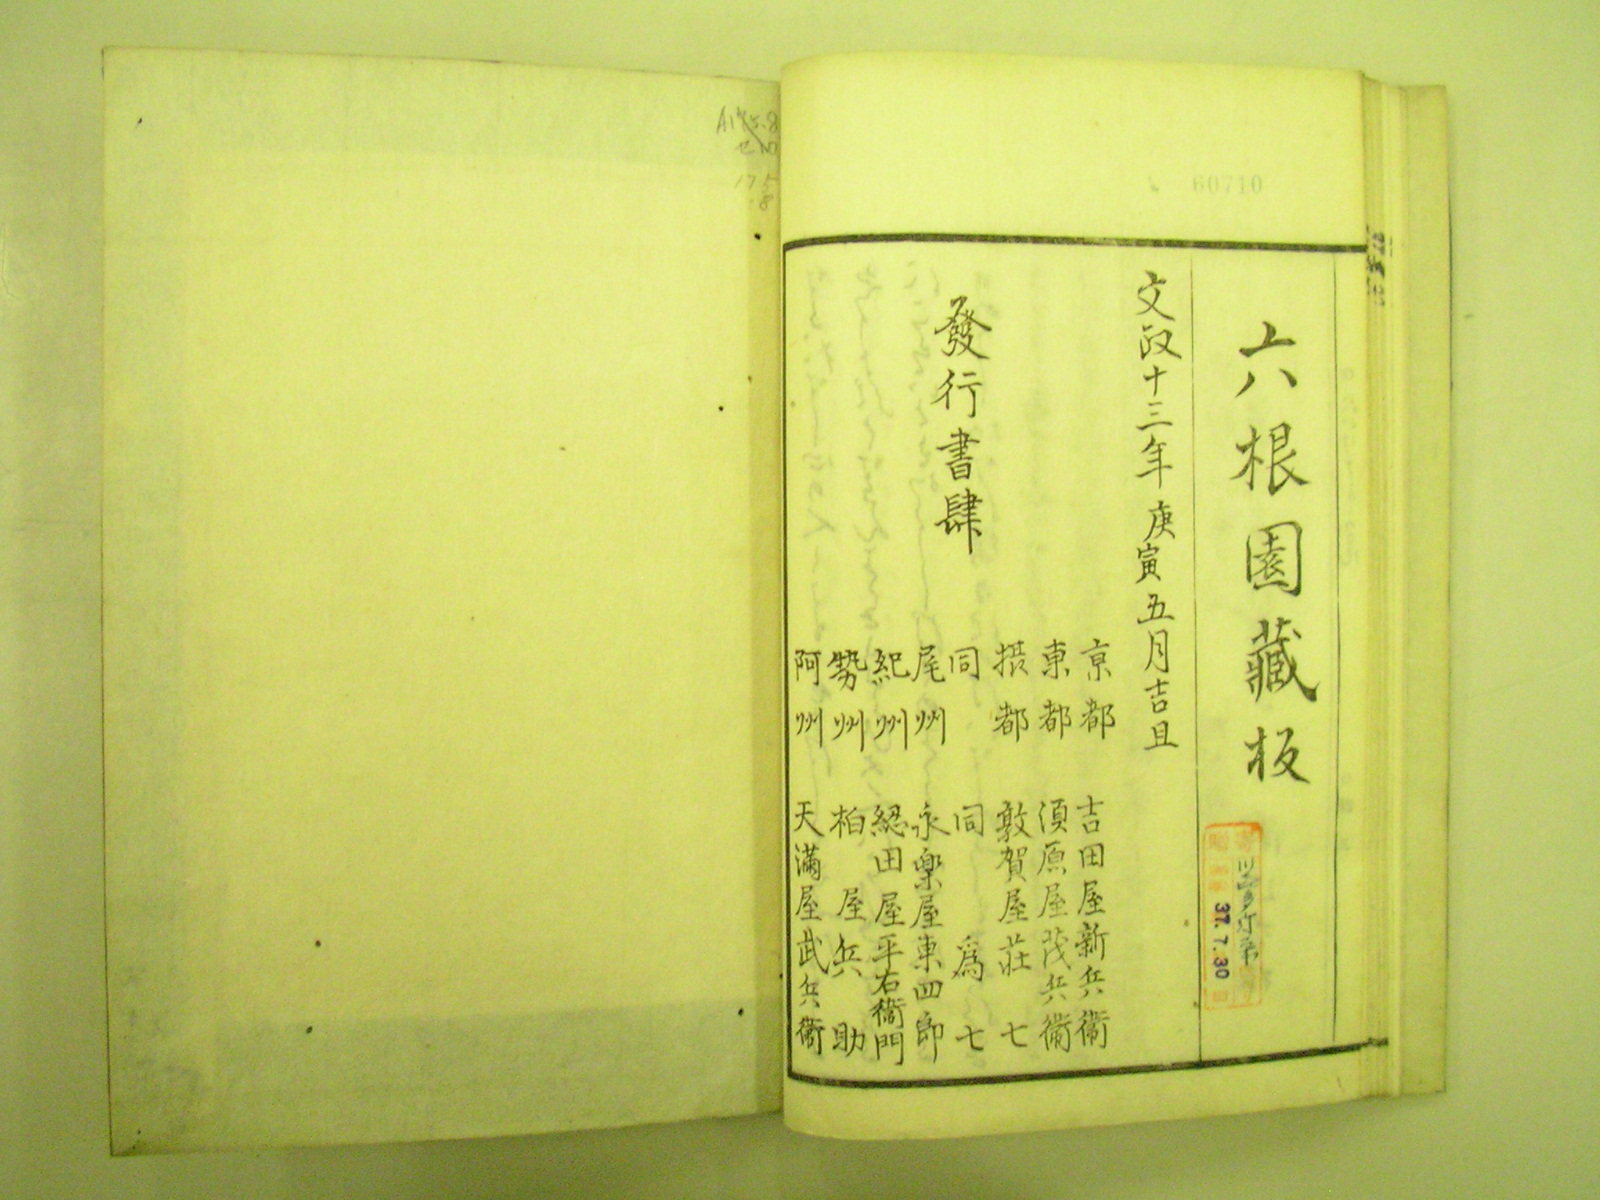 六根園藏板
文政十三年庚寅五月吉旦
發行書肆
京都 吉田屋新兵衛
東都 須原屋茂兵衛
摂都 敦賀屋莊七
同 同 爲七
尾州 永樂屋東四郎
紀州 綛田屋平右衛門
勢州 柏屋兵助
阿州 天滿屋武兵衛
60710
37.7.30
A175.8
セ10
175
.8